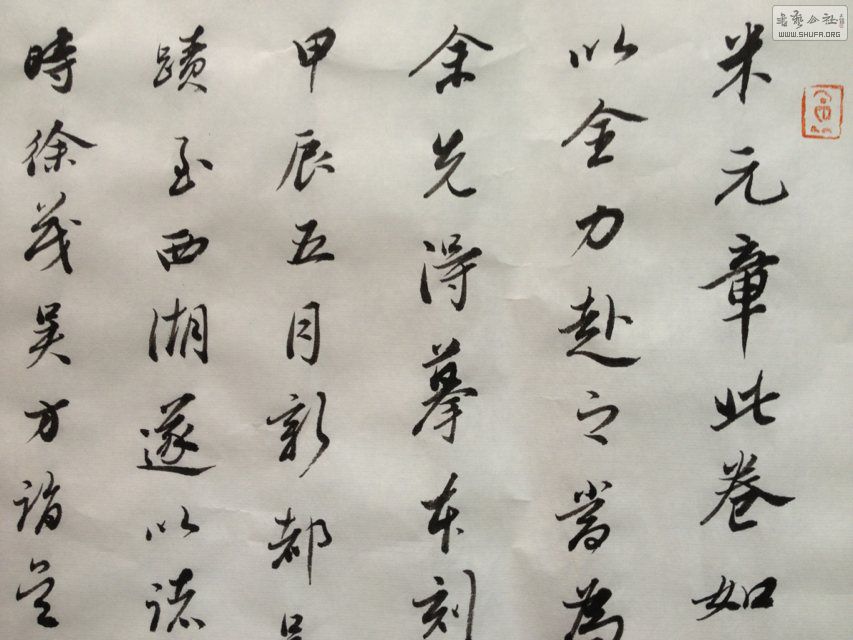 米元章此卷如
以全力赴之當為
余先得摹本刻
甲辰五月新都
蹟至西湖遂以諸
時徐茂吳方詣吳
書藝公社
WWW.SHUFA.ORG